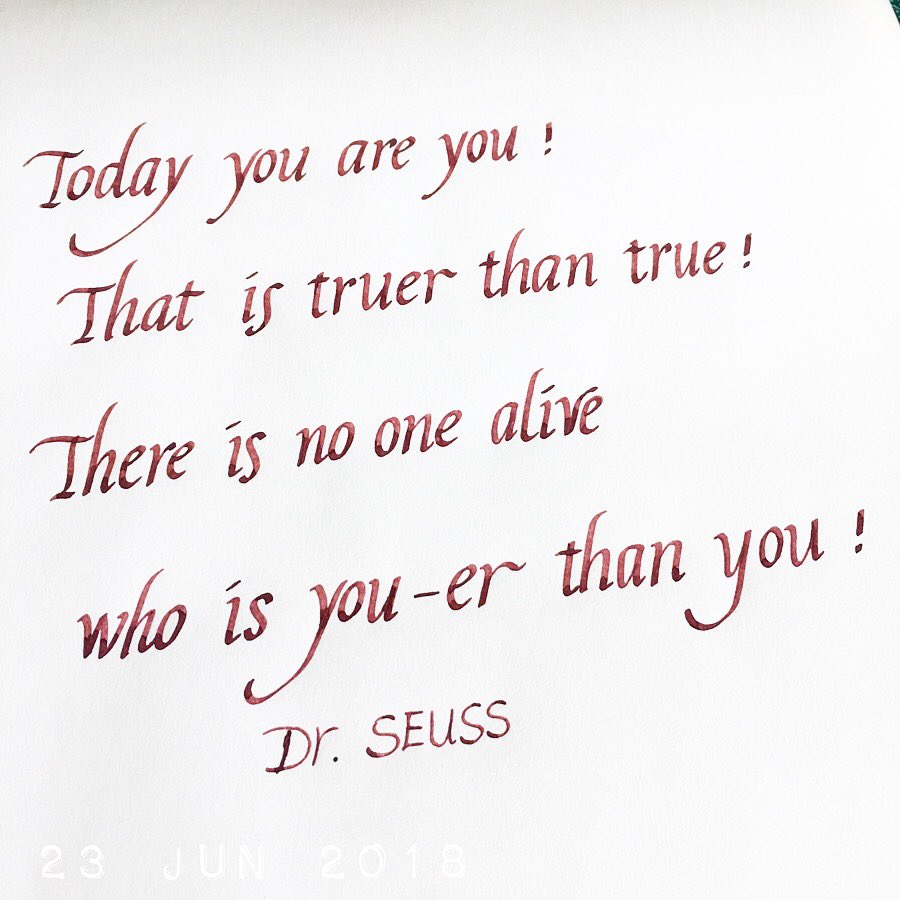 Today you are you !
That is truer than true !
There is no one alive
who is you-er than you !
Dr. SEUSS
23 JUN 2018